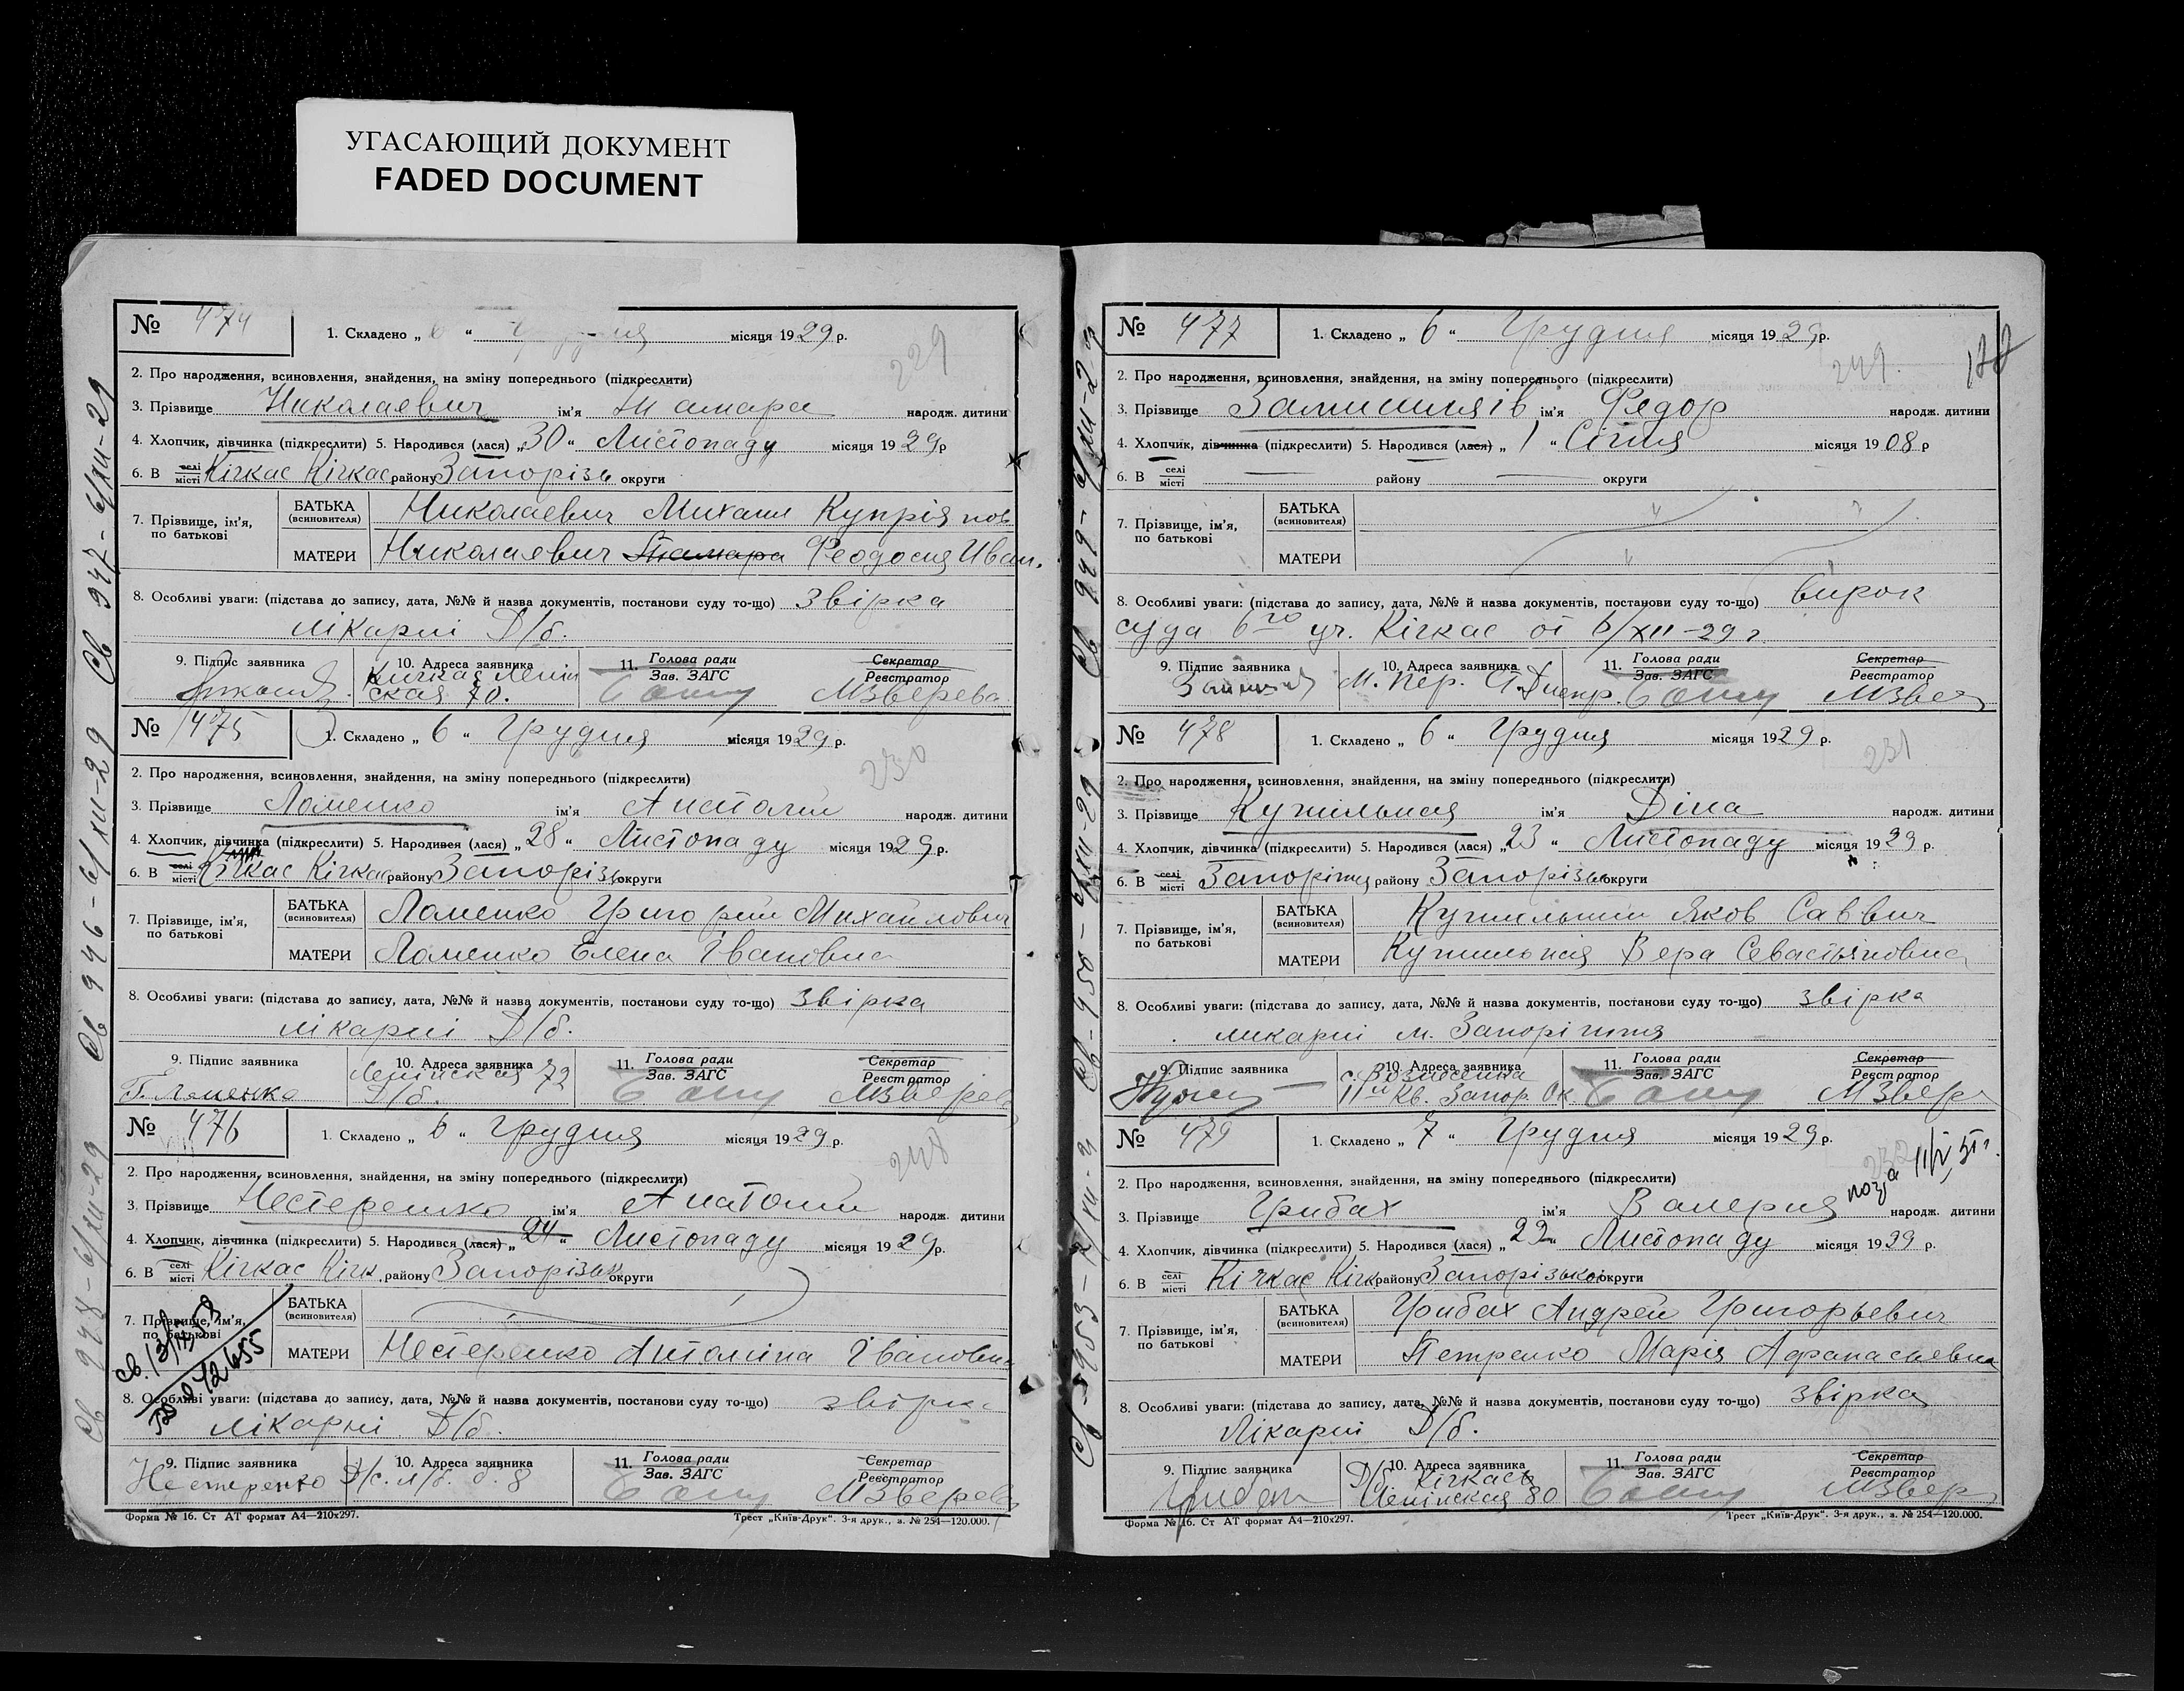 УГАСАЮЩИЙ ДОКУМЕНТ
FADED DOCUMENT
№ 474
1. Складено „ 6 “ Грудня місяця 1929 р.
229
2. Про народження, всиновлення, знайдення, на зміну попереднього (підкреслити)
3. Прізвище Николаевич ім'я Тамара народж. дитини
4. Хлопчик, дівчинка (підкреслити) 5. Народився (лася) „30“ Листопаду місяця 1929р
6. В селі місті Кічкас Кічкас району Запорізь округи
7. Прізвище, ім'я, по батькові
БАТЬКА (всиновителя) Николаевич Михаил Купріянов
МАТЕРИ Николаевич Тамара Феодосия Иван.
8. Особливі уваги: (підстава до запису, дата, №№ й назва документів, постанови суду то-що) Звірка
лікарні Д/б.
9. Підпис заявника
10. Адреса заявника Кичкас Ленинская 70.
11. Голова ради Зав. ЗАГС
Секретар Реєстратор МЗверева
№ 475
1. Складено „ 6 “ Грудня місяця 1929 р.
230
2. Про народження, всиновлення, знайдення, на зміну попереднього (підкреслити)
3. Прізвище Ломенко ім'я Анатолий народж. дитини
4. Хлопчик, дівчинка (підкреслити) 5. Народився (лася) „28“ Листопаду місяця 1929 р.
6. В селі місті Кічкас Кічкас району Запорізь округи
7. Прізвище, ім'я, по батькові
БАТЬКА (всиновителя) Ломенко Григорий Михайлович
МАТЕРИ Ломенко Елена Івановна
8. Особливі уваги: (підстава до запису, дата, №№ й назва документів, постанови суду то-що) Звірка
лікарні Д/б.
9. Підпис заявника Г. Ломенко
10. Адреса заявника Ленінская 72 Д/б.
11. Голова ради Зав. ЗАГС
Секретар Реєстратор МЗверева
№ 476
1. Складено „ 6 “ Грудня місяця 1929 р.
248
2. Про народження, всиновлення, знайдення, на зміну попереднього (підкреслити)
3. Прізвище Нестеренко ім'я Анатолий народж. дитини
4. Хлопчик, дівчинка (підкреслити) 5. Народився (лася) „24“ Листопаду місяця 1929р.
6. В селі місті Кічкас Кічк. району Запорізьк округи
7. Прізвище, ім'я, по батькові
БАТЬКА (всиновителя)
МАТЕРИ Нестеренко Антоніна Івановна
8. Особливі уваги: (підстава до запису, дата, №№ й назва документів, постанови суду то-що) звірка
лікарні Д/б.
9. Підпис заявника Нестеренко
10. Адреса заявника Д/с. л/б. д. 8
11. Голова ради Зав. ЗАГС
Секретар Реєстратор МЗверева
Форма № 16. Ст АТ формат А4—210х297.
Трест „Київ-Друк“. 3-я друк., з. № 254—120.000.
Св 948-6/XII-29 Св 946-6/XII-29 Св 947-6/XII-29
№ 477
1. Складено „ 6 “ Грудня місяця 1929р.
249
2. Про народження, всиновления, знайдення, на зміну попереднього (підкреслити)
3. Прізвище ім'я Фядор народж. дитини
4. Хлопчик, дівчинка (підкреслити) 5. Народився (лася) „ 1 “ Січня місяця 1908 р
6. В селі місті району округи
7. Прізвище, ім'я, по батькові
БАТЬКА (всиновителя)
МАТЕРИ
8. Особливі уваги: (підстава до запису, дата, №№ й назва документів, постанови суду то-що) вирок
суда 6го уч. Кічкас от 6/XII-29 г.
9. Підпис заявника
10. Адреса заявника М. Пер.
11. Голова ради Зав. ЗАГС
Секретар Реєстратор МЗвер
№ 478
1. Складено „ 6 “ Грудня місяця 1929 р.
231
2. Про народження, всиновлення, знайдення, на зміну попереднього (підкреслити)
3. Прізвище Кужильная ім'я Діна народж. дитини
4. Хлопчик, дівчинка (підкреслити) 5. Народився (лася) „23“ Листопаду місяця 1929 р.
6. В селі місті Запоріжжя району Запорізьк округи
7. Прізвище, ім'я, по батькові
БАТЬКА (всиновителя) Кужильний Яков Саввич
МАТЕРИ Кужильная Вера Севастьяновна
8. Особливі уваги: (підстава до запису, дата, №№ й назва документів, постанови суду то-що) звірка
ликарні м. Запоріжжя
9. Підпис заявника
10. Адреса заявника с. Вознесенка 11й кв. Запор. Ок
11. Голова ради Зав. ЗАГС
Секретар Реєстратор МЗвер
№ 479
1. Складено „ 7 “ Грудня місяця 1929 р.
232
2. Про народження, всиновлення, знайдення, на зміну попереднього (підкреслити)
3. Прізвище Грибах ім'я Валерия народж. дитини
4. Хлопчик, дівчинка (підкреслити) 5. Народився (лася) „22“ Листопаду місяця 1929 р.
6. В селі місті Кічкас Кічк району Запорізької округи
7. Прізвище, ім'я, по батькові
БАТЬКА (всиновителя) Грибах Андрей Григорьевич
МАТЕРИ Петренко Марія Афанасьевна
8. Особливі уваги: (підстава до запису, дата, №№ й назва документів, постанови суду то-що) звірка
Лікарні Д/б.
9. Підпис заявника
10. Адреса заявника Д/б Кічкас Ленінская 80
11. Голова ради Зав. ЗАГС
Секретар Реєстратор МЗвер
Форма № 16. Ст АТ формат А4—210х297.
Трест „Київ-Друк“. 3-я друк., з. № 254—120.000.